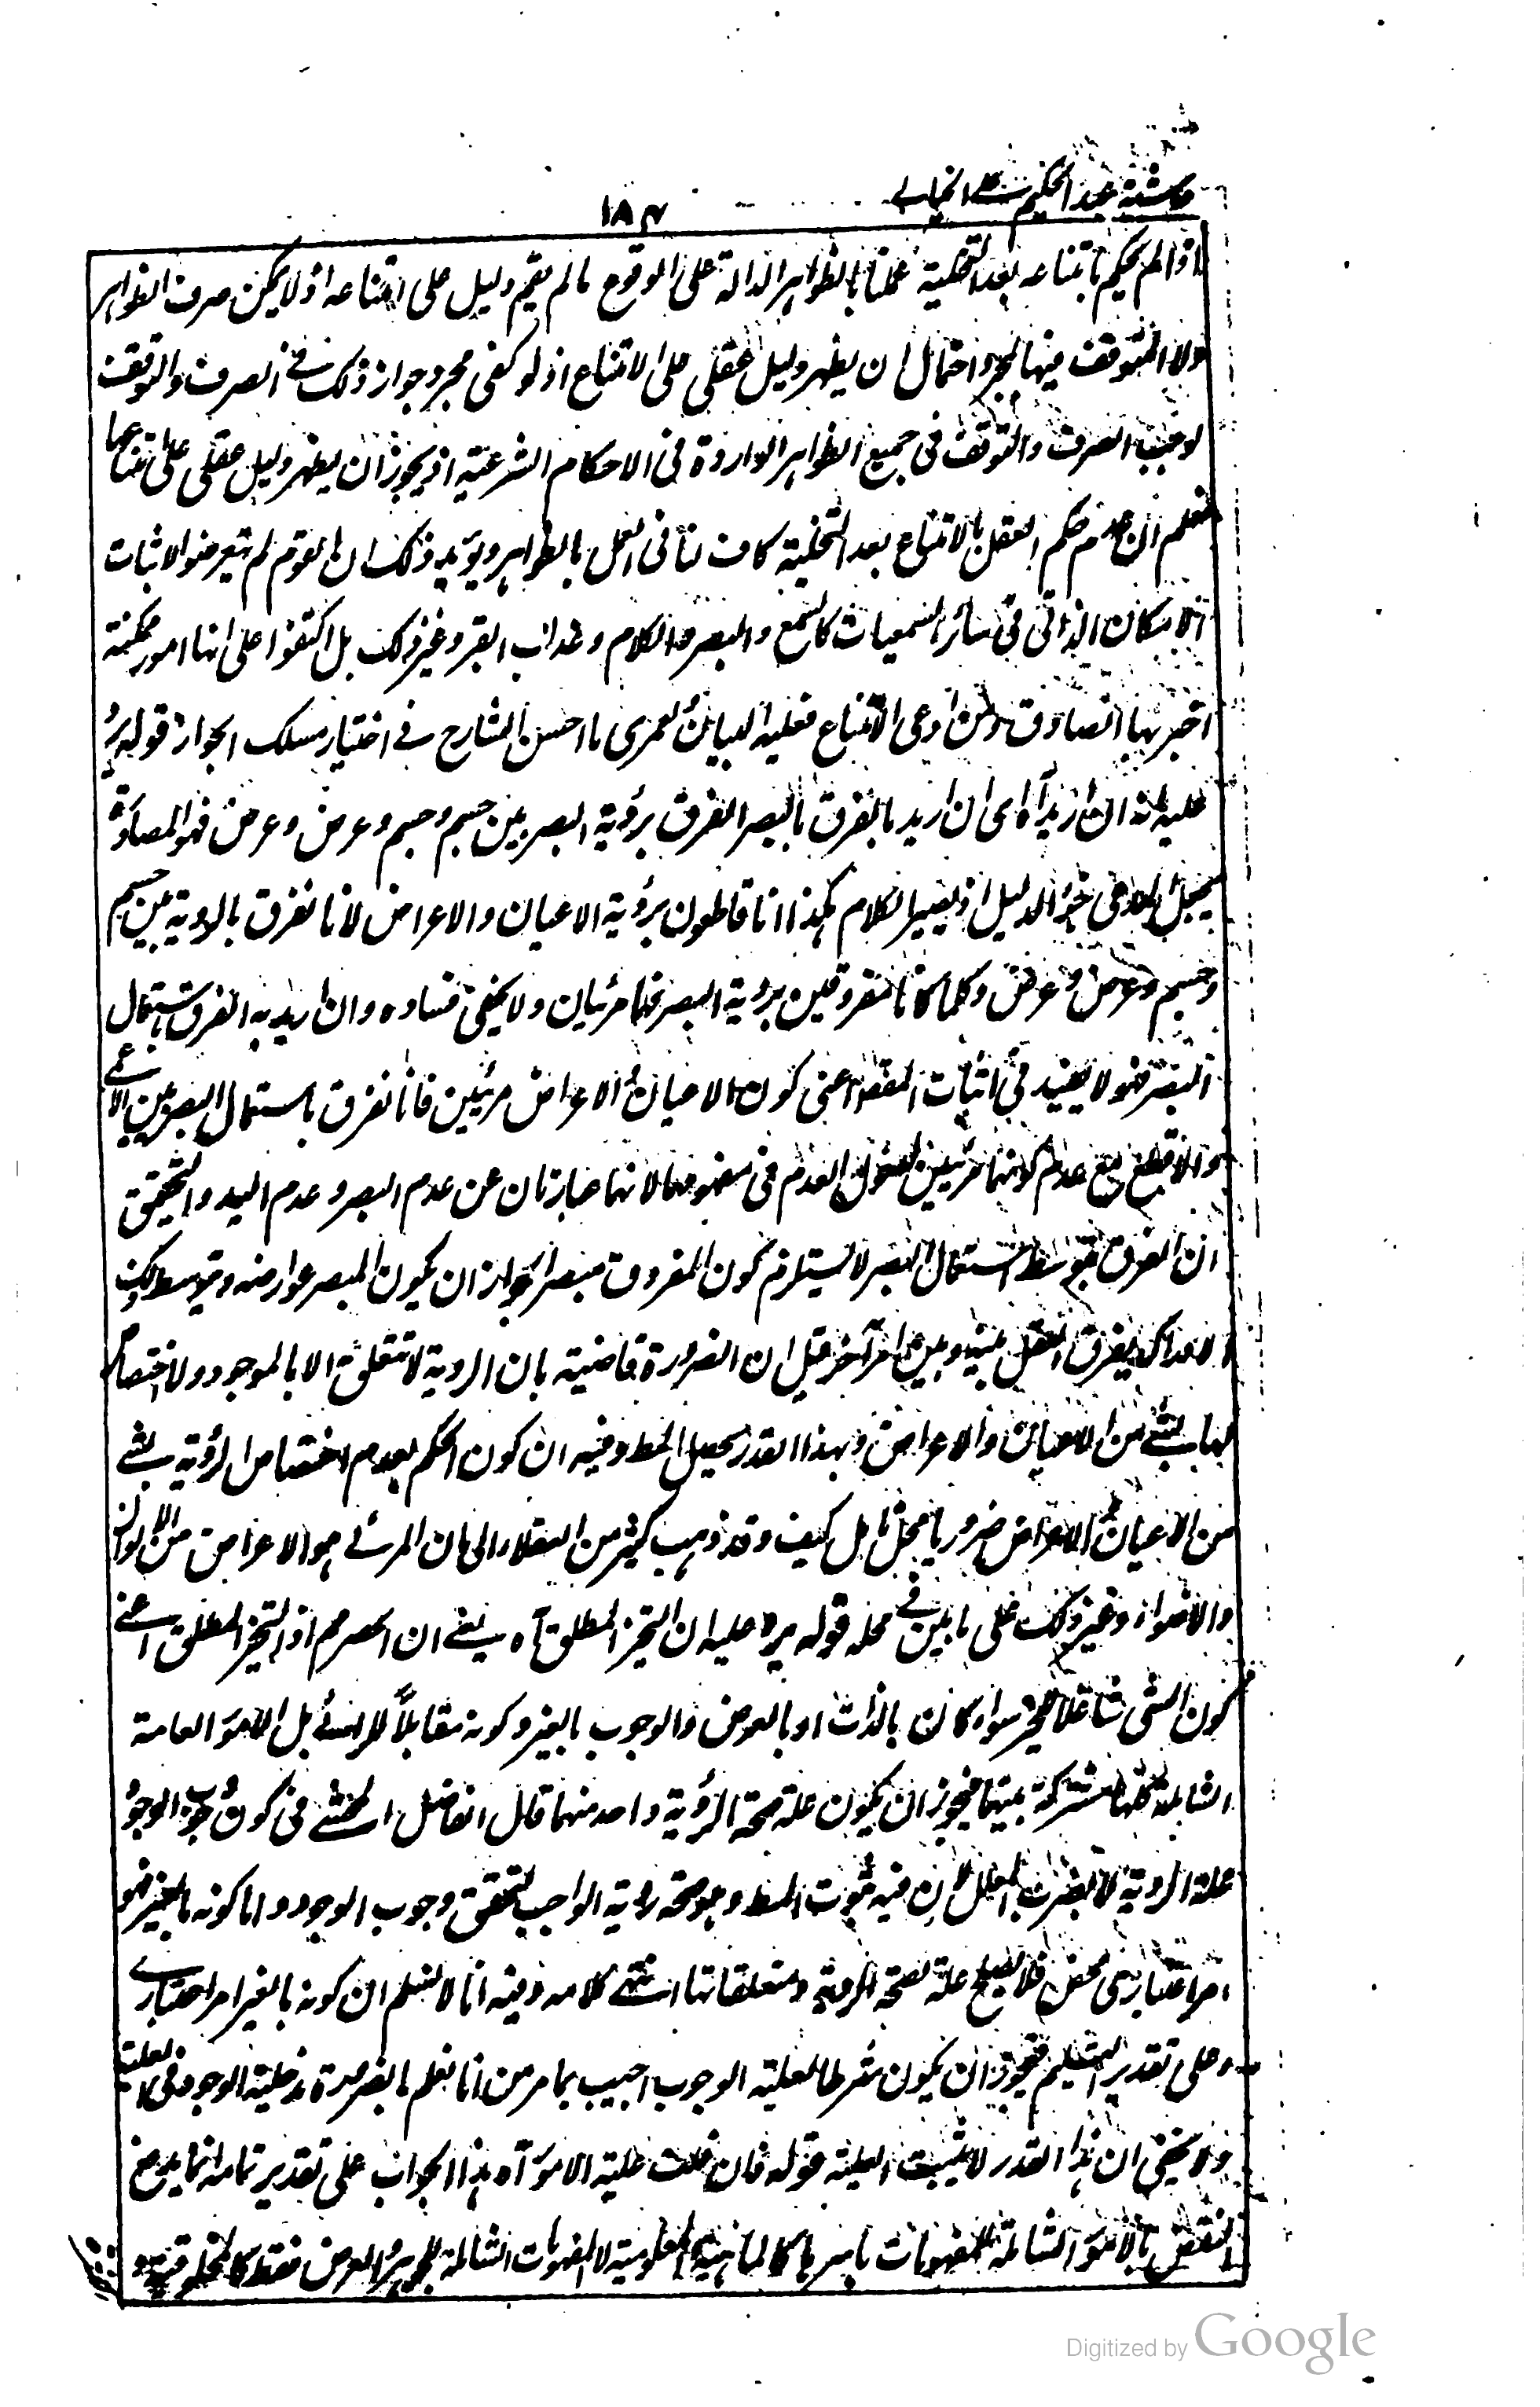 حاشية عبد الحكيم على الخيالي
١٨٤
اذا لم يحكم بامتناعه بعد التخلية عملنا بالظواهر الدالة على الوقوع ما لم يقم دليل على امتناعه اذ لا يمكن صرف الظواهر
ولا التوقف فيها لمجرد احتمال ان يظهر دليل عقلي على الامتناع اذ لو كفى مجرد جواز ذلك في الصرف والتوقف
لوجب الصرف والتوقف في جميع الظواهر الواردة في الاحكام الشرعية اذ يجوز ان يظهر دليل عقلي على امتناعها
فعلم ان عدم حكم العقل بالامتناع بعد التخلية كاف لنا في العمل بالظواهر ويؤيد ذلك ان القوم لم يتعرضوا لاثبات
الامكان الذاتي في سائر السمعيات كالسمع والبصر والكلام وعذاب القبر وغير ذلك بل اكتفوا على انها امور ممكنة
اخبر بها الصادق ومن ادعى الامتناع فعليه البيان ولعمري ما احسن الشارح في اختيار مسلك الجواز قوله يرد
عليه انه ان اريد آه اى ان اريد بالفرق بالبصر الفرق برؤية البصر بين جسم وجسم وعرض وعرض فهو المصادرة
يجعل المدعى جزء الدليل اذ يصير الكلام هكذا انا قاطعون برؤية الاعيان والاعراض لانا نفرق بالرؤية بين جسم
وجسم وعرض وعرض وكلما كانا مفروقين برؤية البصر فهما مرئيان ولا يخفى فساده وان اريد به الفرق باستعمال
البصر فهو لا يفيد في اثبات المقصد اعنى كون الاعيان والاعراض مرئيين فانا نفرق باستعمال البصر بين الاعمى
والاقطع مع عدم كونهما مرئيين لدخول العدم في مفهومهما لانهما عبارتان عن عدم البصر وعدم اليد والتحقيق
ان الفرق بتوسط استعمال البصر لا يستلزم كون المفروق مبصرا لجواز ان يكون المبصر عوارضه وبتوسط ذلك
الادراك يفرق العقل بينه وبين امر آخر قيل ان الضرورة قاضية بان الرؤية لا تتعلق الا بالموجود ولا اختصاص
لها بشئ من الاعيان والاعراض وبهذا القدر يحصل المط وفيه ان كون الحكم بعدم اختصاص الرؤية بشئ
من الاعيان والاعراض ضروريا محل تامل كيف وقد ذهب كثير من العقلاء الى ان المرئي هو الاعراض من الالوان
والاضواء وغير ذلك على ما بين في محله قوله يرد عليه ان التحيز المطلق آه يعني ان الحصر مم اذ التحيز المطلق اعني
كون الشئ شاغلا للحيز سواء كان بالذات او بالعرض والوجوب بالغير وكونه مقابلا للرائي بل الامور العامة
الشاملة كلها مشتركة بينهما فيجوز ان يكون علة صحة الرؤية واحد منهما قال الفاضل المحشي في كون وجوب الوجود
علة الرؤية لا يضرب المعلل لان فيه ثبوت المط وهو صحة رؤية الواجب لتحقق وجوب الوجود واما كونه بالغير فهو
امر اعتباري محض فلا يصلح علة لصحة الرؤية ومتعلقاتها انتهى كلامه وفيه انا لا نسلم ان كونه بالغير امر اعتباري
وعلى تقدير التسليم فيجوز ان يكون شرطا لعلية الوجوب اجيب بما مر من انا نعلم بالضرورة مدخلية الوجود في العلية
ولا يخفى ان هذا القدر لا يثبت العلية قوله فان قلت علية الامور آه هذا الجواب على تقدير تمامه انما يدفع
النقض بالامور الشاملة للمفهومات باسرها كالماهية والمعلومية لا المفهومات الشاملة للجوهر والعرض فقط كالمخلوقية و
Digitized by Google